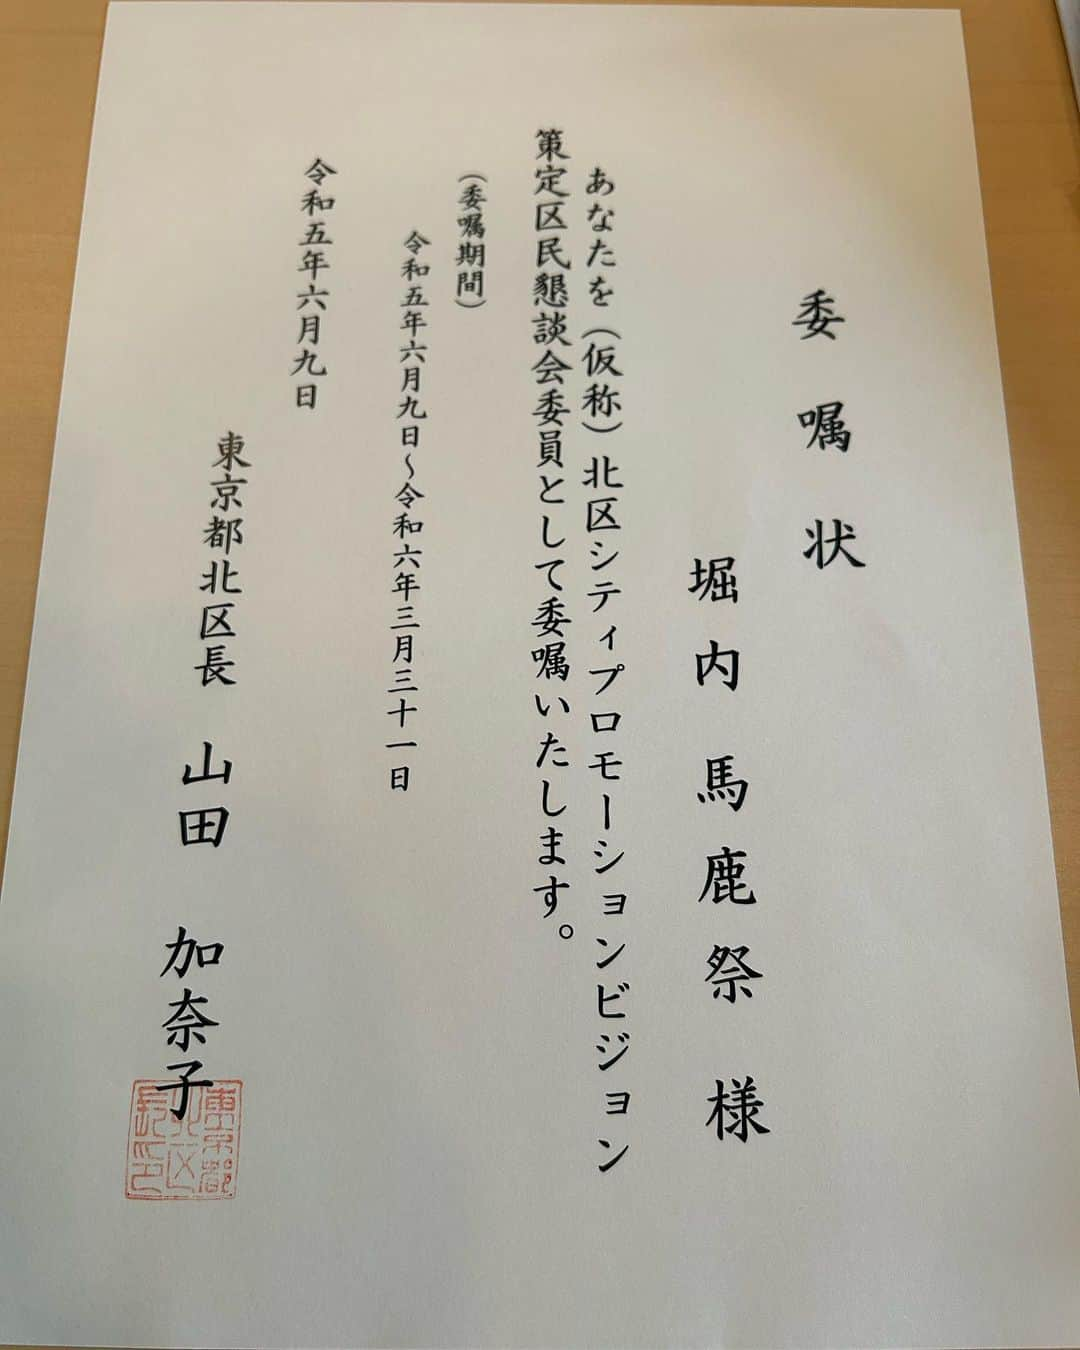 委嘱状
堀内馬鹿祭 様
あなたを（仮称）北区シティプロモーションビジョン
策定区民懇談会委員として委嘱いたします。
（委嘱期間）
令和五年六月九日～令和六年三月三十一日
令和五年六月九日
東京都北区長 山田 加奈子
東京都
北区
長印